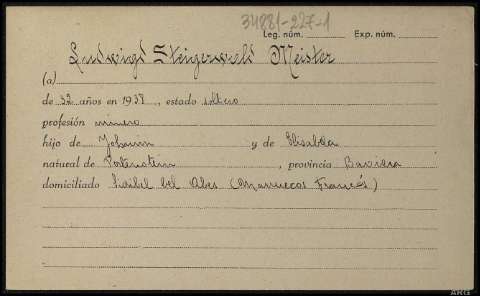 34881-227-1
Leg. núm. Exp. núm.
Ludwigd Steigerwald Meister
(a)
de 32 años en 1938, estado soltero
profesión minero
hijo de Johann y de Elisabta
natural de, provincia Baviera
domiciliado Sidibel del Abes (Marruecos Francés)
ARG